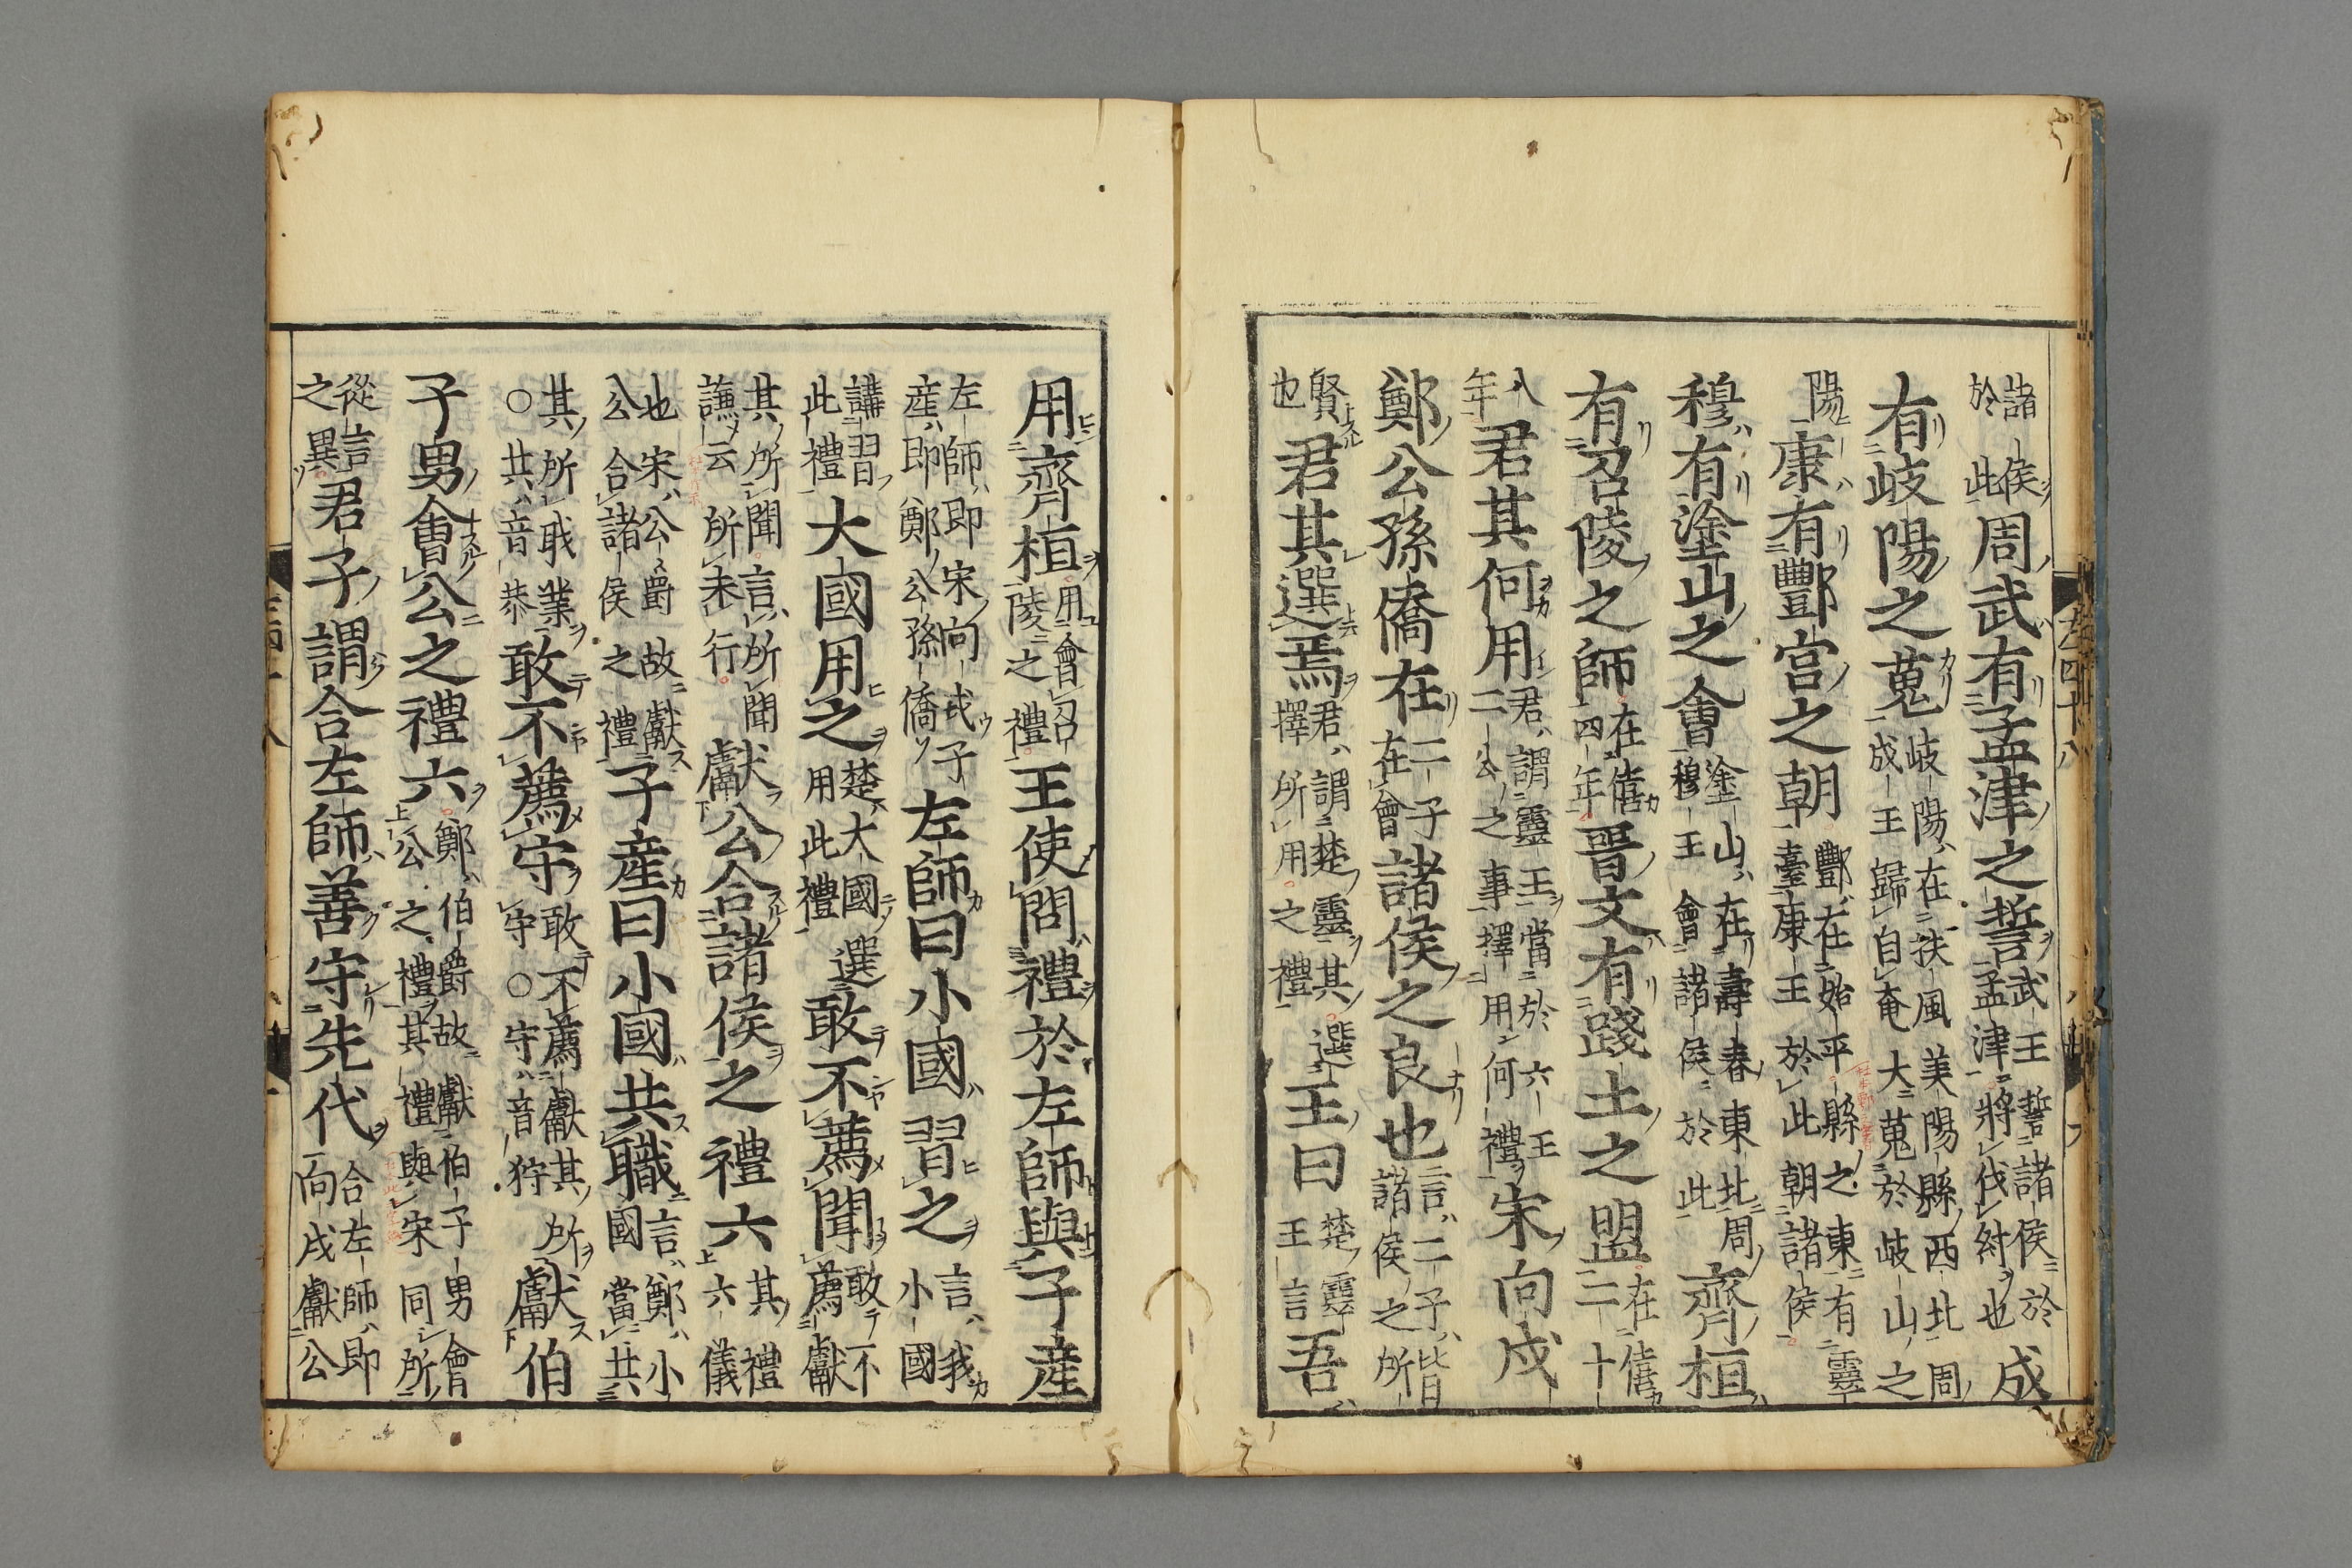 諸侯於此周武有孟津之誓武王誓諸侯於孟津將伐紂也成
有岐陽之蒐岐陽在扶風美陽縣西北周成王歸自奄大蒐於岐山之
陽康有酆宮之朝酆在始平縣之東有靈臺康王於此朝諸侯
穆有塗山之會塗山在壽春東北周穆王會諸侯於此齊桓
有召陵之師在僖四年晋文有踐土之盟在僖二十
八年君其何用君謂靈王當於六王二公之事擇用何禮宋向戌
鄭公孫僑在二子在會諸侯之良也言二子皆諸侯之所
賢也君其選焉君謂楚靈其選擇所用之禮王曰楚靈王言吾
用齊桓用會召陵之禮王使問禮於左師與子産
左師即宋向戌子産即鄭公孫僑左師曰小國習之言我小國
講習此禮大國用之楚大國用此禮選敢不薦聞敢不薦獻
其所聞言所聞謙云所未行獻公合諸侯之禮六其禮六儀
也宋公爵故獻公合諸侯之禮子産曰小國共職言鄭小國當共
其所職業○共音恭敢不薦守敢不薦獻其所守○守音狩獻伯
子男會公之禮六鄭伯爵故獻伯子男會上公之禮其禮與宋同所
從言之異君子謂合左師善守先代合左師即向戌獻公